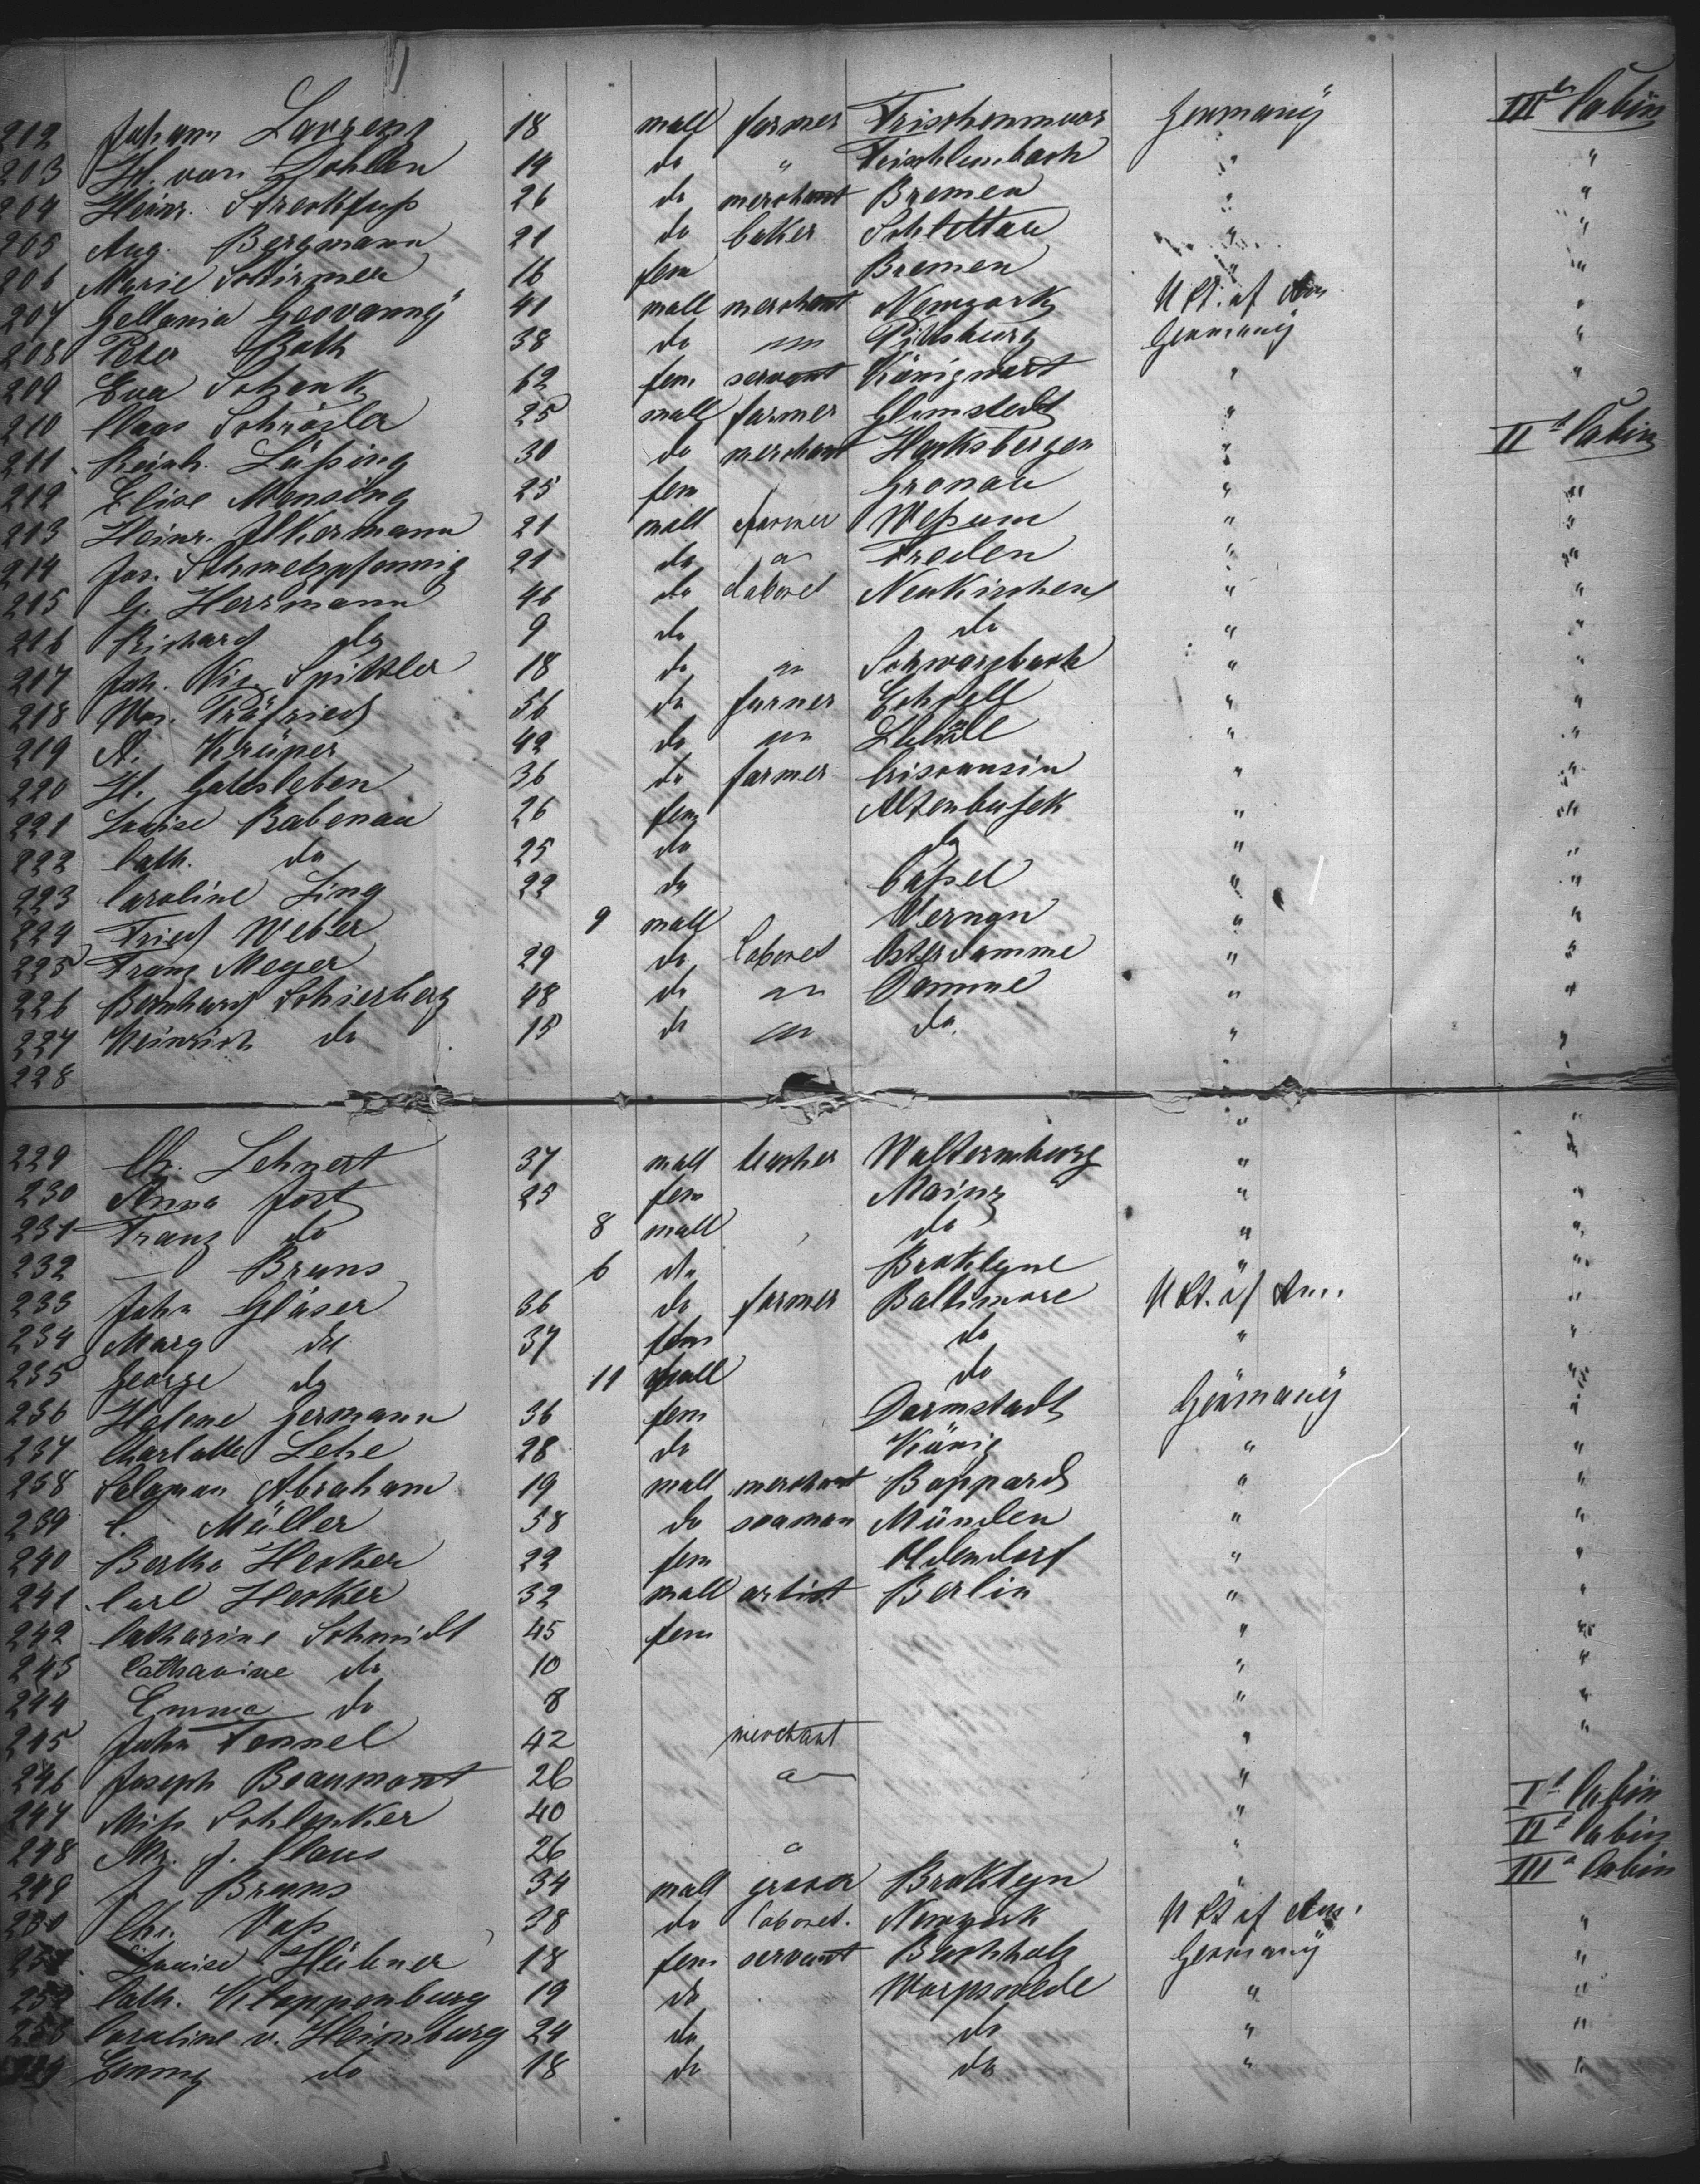 212 Johann Lorzeng 18 mall farmer Frischenmoor Germany III Cabin
203 H. von Dohlen 14 do " Frischlenbach " "
204 Heinr. Streckfuß 26 do merchant Bremen " "
205 Aug. Bergmann 21 do baker Schlettau " "
206 Marie Schirmer 16 fem Bremen " "
207 Gellania Geovanny 41 mall merchant Newyork U St. of Am "
208 Peter Bath 38 do " Pittsburg Germany "
209 Eva Schenk 62 fem servant Königwart " "
210 Claas Schröder 25 mall farmer Glimstedt " II Cabin
211 Reinh. Läßing 30 do merchant Hacksbergen "
212 Elise Mensing 25 fem Gronau " "
213 Heinr. Ilkermann 21 mall farmer Weßum " "
214 Jos. Schmelzpfennig 21 do " Vreden " "
215 G. Herrmann 46 do laborel Neukirchen " "
216 Richard do 9 do do " "
217 Joh. Spittler 18 do " Schwarzbach " "
218 Wm. Präfried 56 do farmer " "
219 A. Krüper 42 do " " "
220 H. Gatesleben 36 do farmer Crisconsin " "
221 Louise Rabenau 26 fem Altenbusek " "
222 Cath. do 25 do do " "
223 Caroline Ling 22 do Caßel " "
224 Fried Weber 9 mall Werngn " "
225 Franz Meyer 29 do laborel Osterdamme " "
226 Bernhard Schierberg 48 do " Damme " "
227 Heinrich do 15 do " do " "
228
229 Ch. Lehnert 37 mall teacher Walternburg " "
230 Anna Jost 25 fem Mainz " "
231 Franz do 8 mall do " "
232 — Bruns 6 do Brooklyne " "
233 John Gläser 36 do farmer Baltimore U St. of Am. "
234 Marg do 37 fem do " "
235 George do 11 mall do "
236 Helene Germann 36 fem Darmstadt Germany "
237 Charlotte Lehe 28 do König " "
238 Salomon Abraham 19 mall merchant Boppard " "
239 C. Müller 38 do seaman Münden " "
240 Bertha Hecker 22 fem Oldendorf " "
241 Carl Hecker 32 mall artist Berlin " "
242 Catharine Schmidt 45 fem " "
243 Catharine do 10 " "
244 Emma do 8 " "
245 John Fennel 42 merchant " "
246 Joseph Beaumont 26 " " I Cabin
247 Miß Schlenker 40 " II Cabin
248 Mr. J. Claus 26 " " III Cabin
249 J Bruns 34 mall grocer Brooklyn "
250 Chr. Voß 38 do laborel. Newyork U St of Am. "
251 Louise Hübner 18 fem servant Buchholz Germany "
252 Cath. Kloppenburg 19 do Worpswede " "
253 Caroline v. Heimburg 24 do do " "
Emmy do 18 do do " "